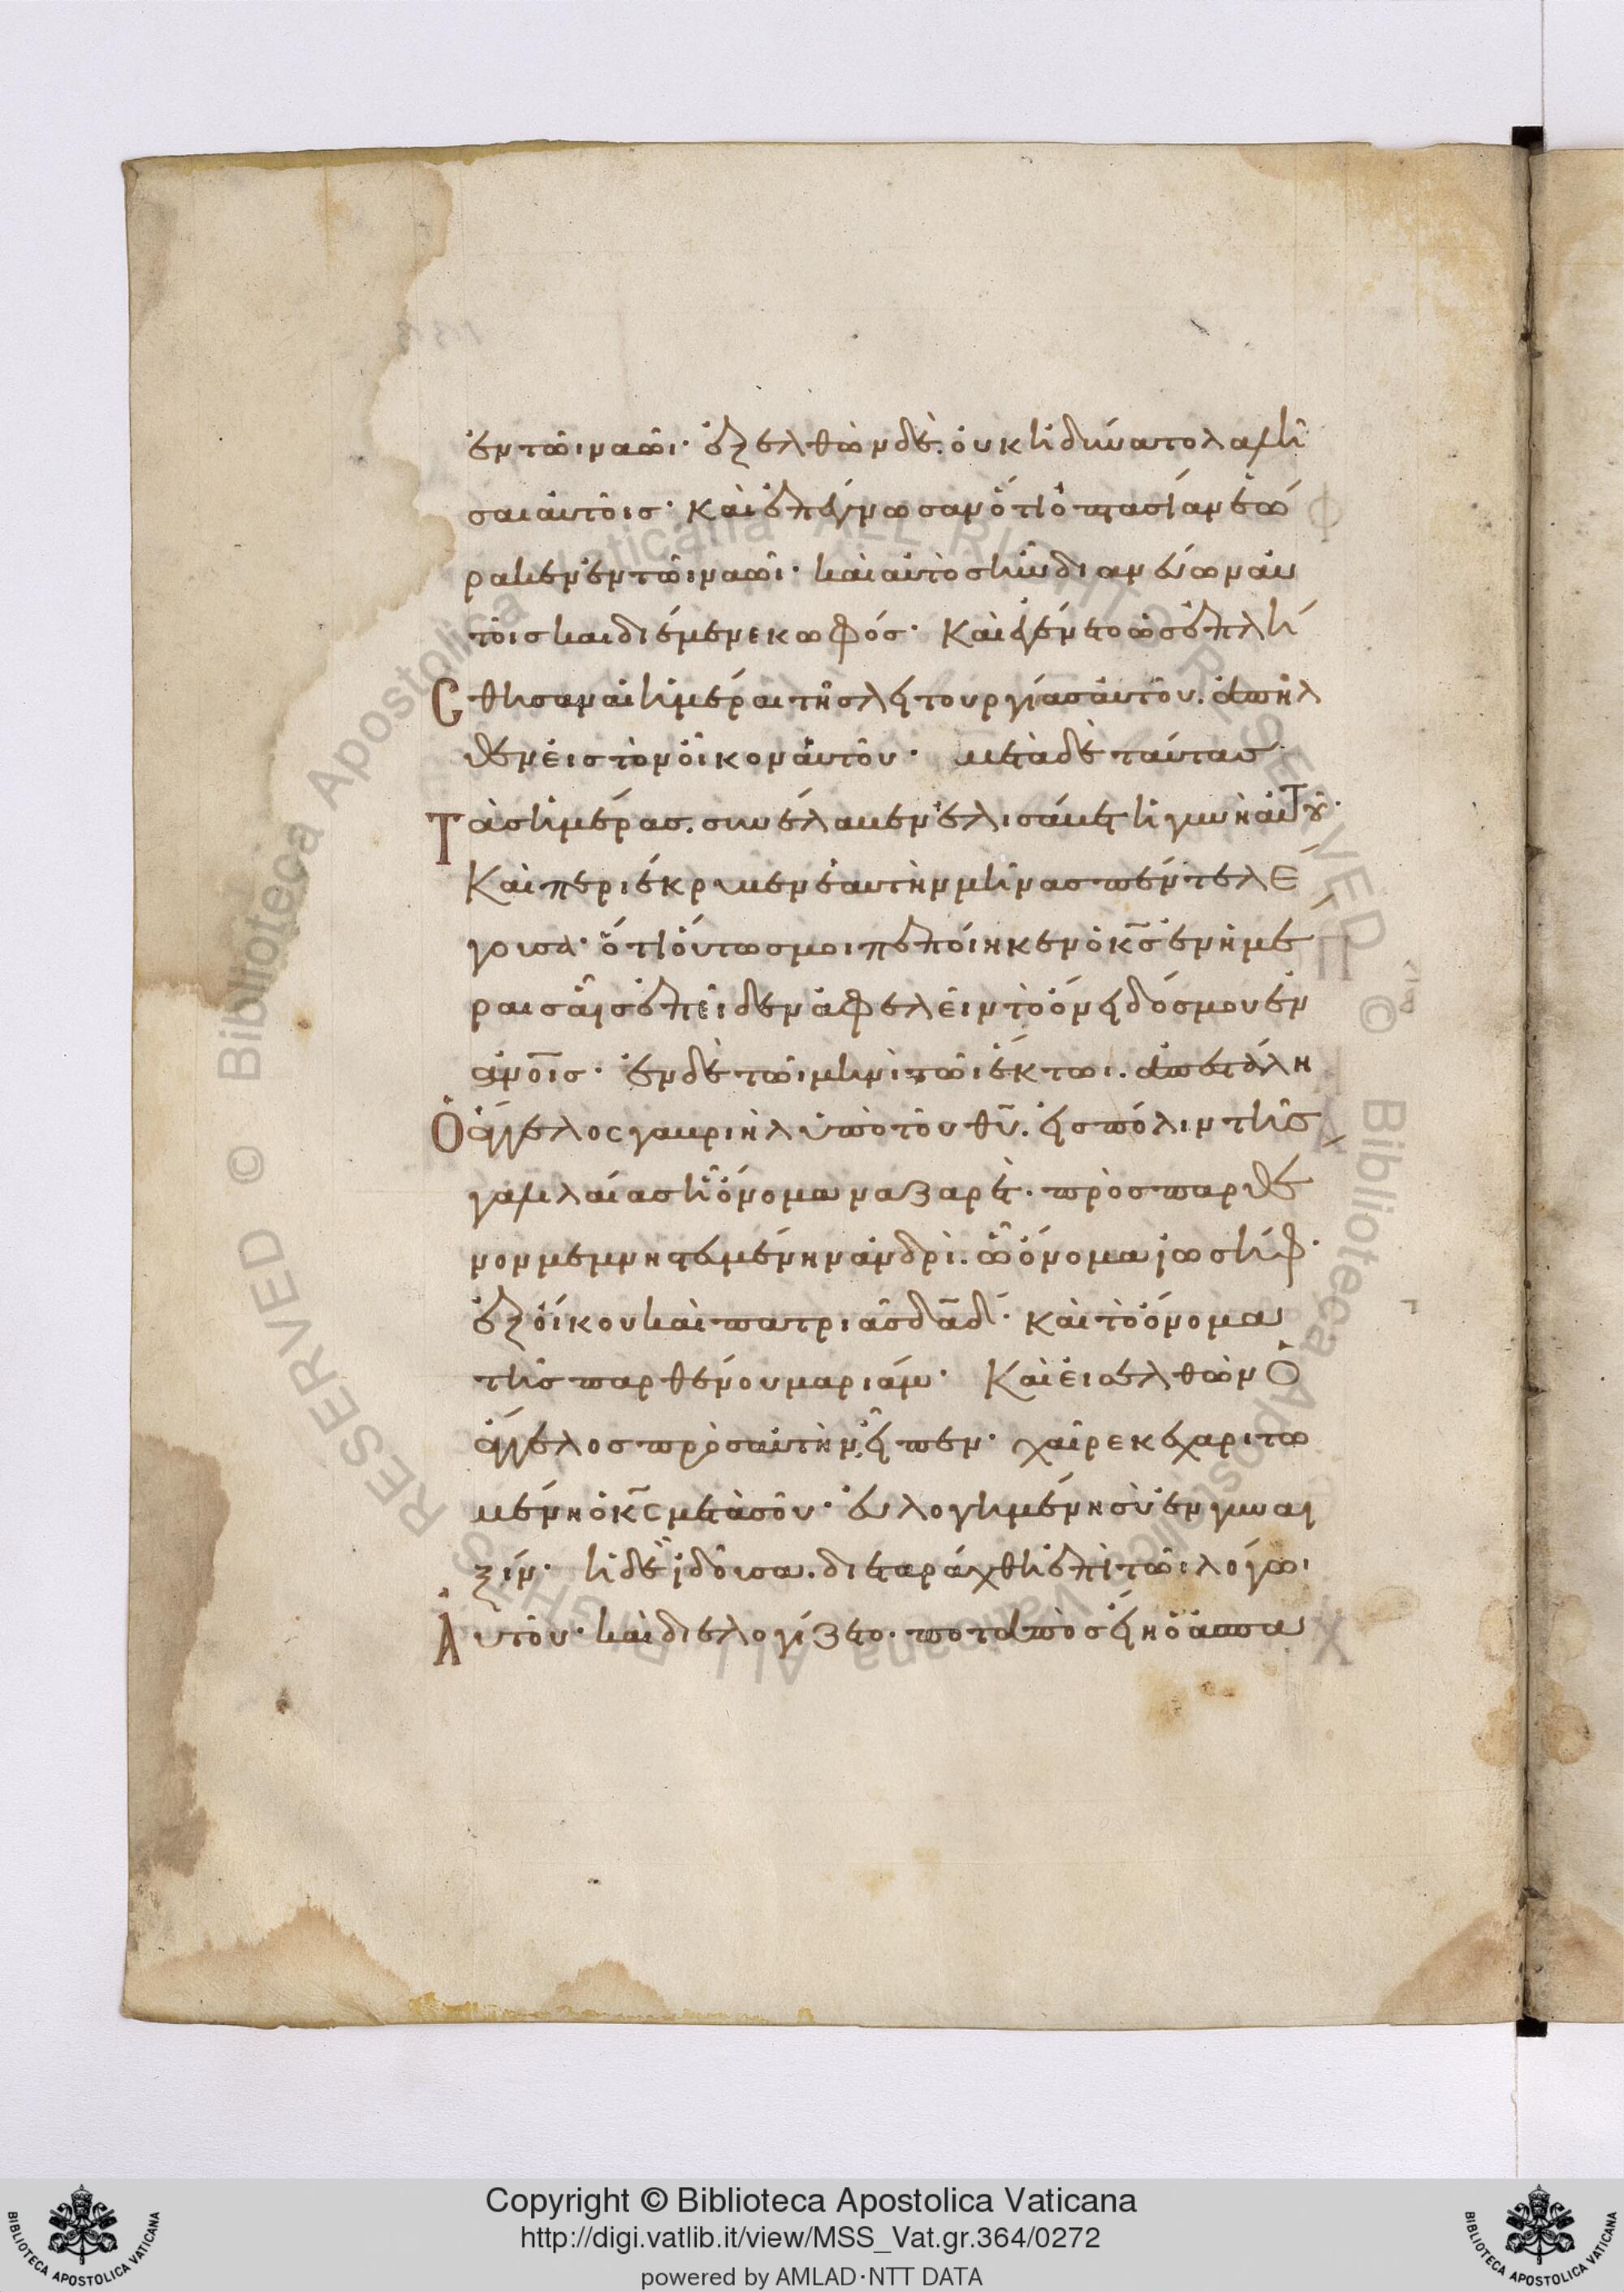 ἐν τῶι ναῶι· ἐξελθὼν δὲ. οὐκ ἠδύνατο λαλῆ
σαι αὐτοῖς· καὶ ἐπέγνωσαν ὅτι ὀπτασίαν ἑώ
ρακεν ἐν τῶι ναῶι· καὶ αὐτὸς ἦν διανεύων αὐ
τοῖς καὶ διέμενε κωφός· Καὶ ἐγένετο ὡς ἐπλή
σθησαν αἱ ἡμέραι τῆς λειτουργίας αὐτοῦ. ἀπῆλ
θεν εἰς τὸν οἶκον αὐτοῦ· μετὰ δὲ ταύτας
Τὰς ἡμέρας. συνέλαβεν ἐλισάβετ ἡ γυνὴ αὐτοῦ·
Καὶ περιέκρυβεν ἑαυτὴν μῆνας πέντε λέ
γουσα· ὅτι οὕτως μοι πεποίηκεν ὁ κς ἐν ἡμέ
ραις αἷς ἐπεῖδεν ἀφελεῖν τὸ ὄνειδός μου ἐν
ἀνοις· ἐν δὲ τῶι μηνὶ τῶι ἕκτωι. ἀπεστάλη
Ὁ ἄγγελος γαβριὴλ ὑπὸ τοῦ θυ. εἰς πόλιν τῆς
γαλιλαίας ἧ ὄνομα ναζαρὲτ· πρὸς παρθέ
νον μεμνηστευμένην ἀνδρὶ. ὧ ὄνομα ἰωσήφ·
ἐξ οἴκου καὶ πατριᾶς δαδ· καὶ τὸ ὄνομα
τῆς παρθένου μαριάμ· Καὶ εἰσελθὼν Ὁ
ἄγγελος πρὸς αὐτὴν εἶπεν· χαῖρε κεχαριτω
μένη ὁ κς μετὰ σοῦ· εὐλογημένη σὺ ἐν γυναι
ξίν· ἡ δὲ ἰδοῦσα. διεταράχθη ἐπὶ τῶι λόγωι
Αὐτοῦ· καὶ διελογίζετο. ποταπὸς εἴη ὁ ἀσπα
Copyright © Biblioteca Apostolica Vaticana
http://digi.vatlib.it/view/MSS_Vat.gr.364/0272
powered by AMLAD·NTT DATA